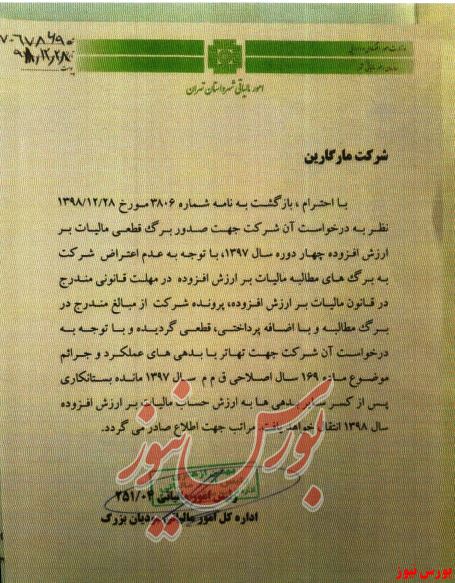 ۹۸/۱۲/۲۸
امور مالیاتی شهر و استان تهران
شرکت مارگارین
با احترام ، بازگشت به نامه شماره ۳۸۰۶ مورخ ۱۳۹۸/۱۲/۲۸
نظر به درخواست آن شرکت جهت صدور برگ قطعی مالیات بر
ارزش افزوده چهار دوره سال ۱۳۹۷، با توجه به عدم اعتراض شرکت
به برگ های مطالبه مالیات بر ارزش افزوده در مهلت قانونی مندرج
در قانون مالیات بر ارزش افزوده، پرونده شرکت از مبالغ مندرج در
برگ مطالبه و با اضافه پرداختی، قطعی گردیده و با توجه به
درخواست آن شرکت جهت تهاتر با بدهی های عملکرد و جرائم
موضوع ماده ۱۶۹ سال اصلاحی ق م م سال ۱۳۹۷ مانده بستانکاری
پس از کسر سایر بدهی ها به ارزش حساب مالیات بر ارزش افزوده
سال ۱۳۹۸ انتقال خواهد یافت. مراتب جهت اطلاع صادر می گردد.
بورس نیوز
۲۵۱/۰۴
اداره کل امور مالیاتی مودیان بزرگ
بورس نیوز